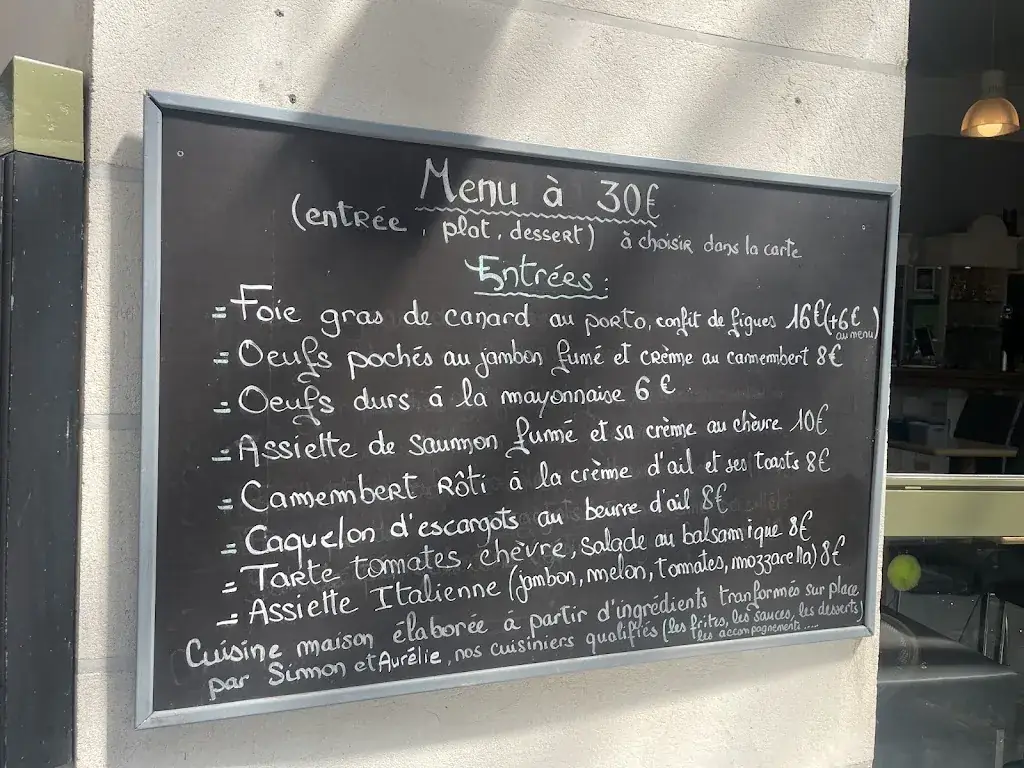 Menu à 30€
(entrée, plat, dessert) à choisir dans la carte
Entrées:
= Foie gras de canard au porto, confit de figues 16€ (+6€ au menu)
= Oeufs pochés au jambon fumé et crème au camembert 8€
= Oeufs durs á la mayonnaise 6€
= Assiette de saumon fumé et sa crème au chèvre 10€
= Camembert Rôti à la crème d'ail et ses toasts 8€
= Caquelon d'escargots au beurre d'ail 8€
= Tarte tomates, chèvre, salade au balsamique 8€
= Assiette Italienne (jambon, melon, tomates, mozzarella) 8€
Cuisine maison élaborée à partir d'ingrédients tranformés sur place
par Simmon et Aurélie, nos cuisiniers qualifiés (les frites, les sauces, les desserts)
les accompagnements.....